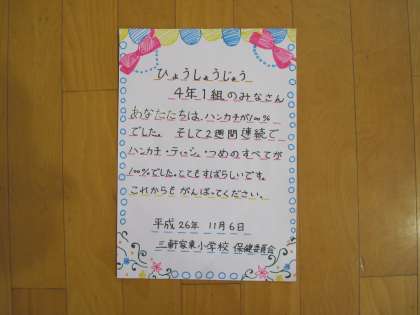 ひょうしょうじょう
4年1組のみなさん
あなたたちは、ハンカチが100%
でした。そして2週間連続で
ハンカチ・ティッシュ・つめのすべてが
100%でした。とてもすばらしいです。
これからもがんばってください。
平成26年 11月6日
三軒家東小学校 保健委員会